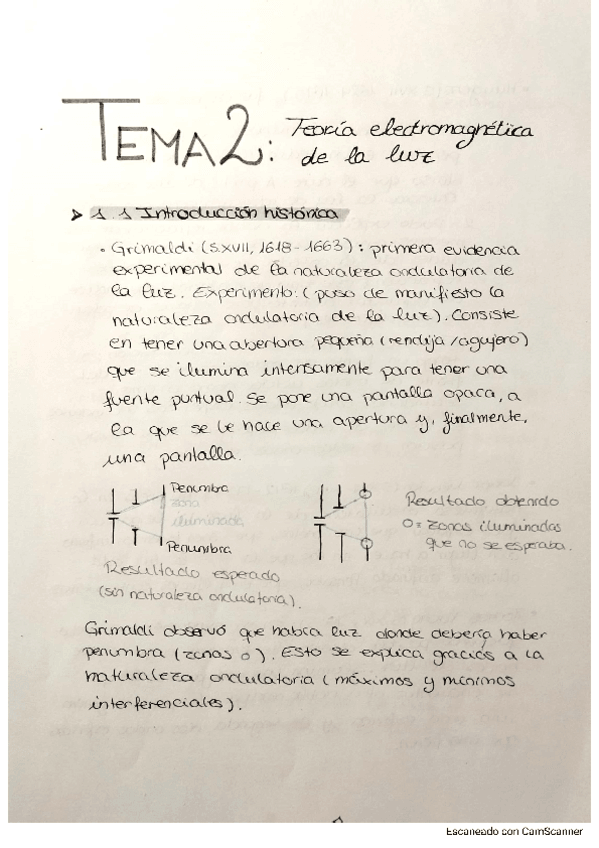 TEMA 2: Teoría electromagnética
de la luz
➤ 1.1 Introducción histórica
• Grimaldi (s.XVII, 1618-1663): primera evidencia
experimental de la naturaleza ondulatoria de
la luz. Experimento: (puso de manifiesto la
naturaleza ondulatoria de la luz). Consiste
en tener una abertura pequeña (rendija/agujero)
que se ilumina intensamente para tener una
fuente puntual. Se pone una pantalla opaca, a
la que se le hace una apertura y, finalmente,
una pantalla.
Penumbra
zona
iluminada
Penumbra
Resultado espeado
(sin naturaleza ondulatoria).
Resultado obtenido
O = zonas iluminadas
que no se esperaba.
Grimaldi observó que había luz donde debería haber
penumbra (zonas o). Esto se explica gracias a la
naturaleza ondulatoria (máximos y mínimos
interferenciales).
Escaneado con CamScanner